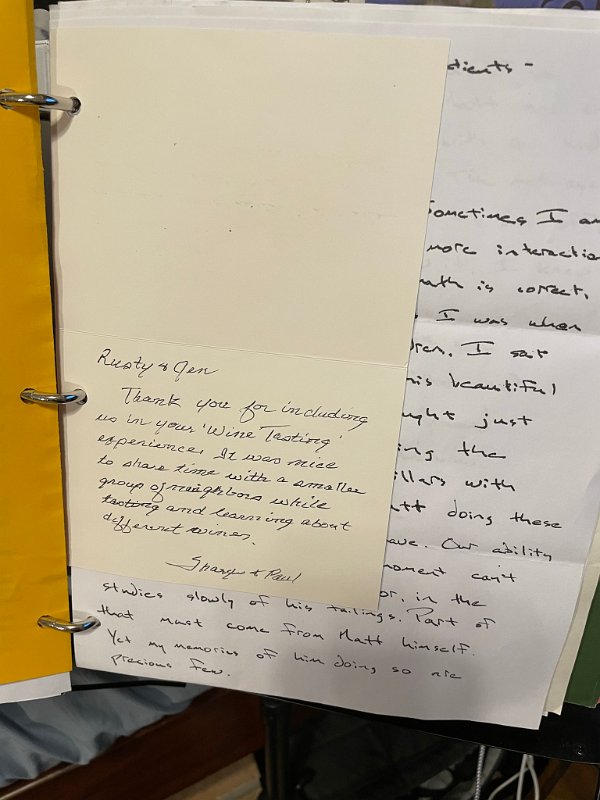 Rusty & Jen
Thank you for including
us in your 'Wine Tasting'
experience. It was nice
to share time with a smaller
group of neighbors while
tasting and learning about
different wines.
& Paul
dients -
Sometimes I am
more interaction
math is correct.
I was when
dren. I sat
his beautiful
ught just
ing the
illars with
att doing these
ave. Our ability
moment can't
or, in the
studies slowly of his failings. Part of
that must come from Matt himself.
Yet my memories of him doing so are
precious few.